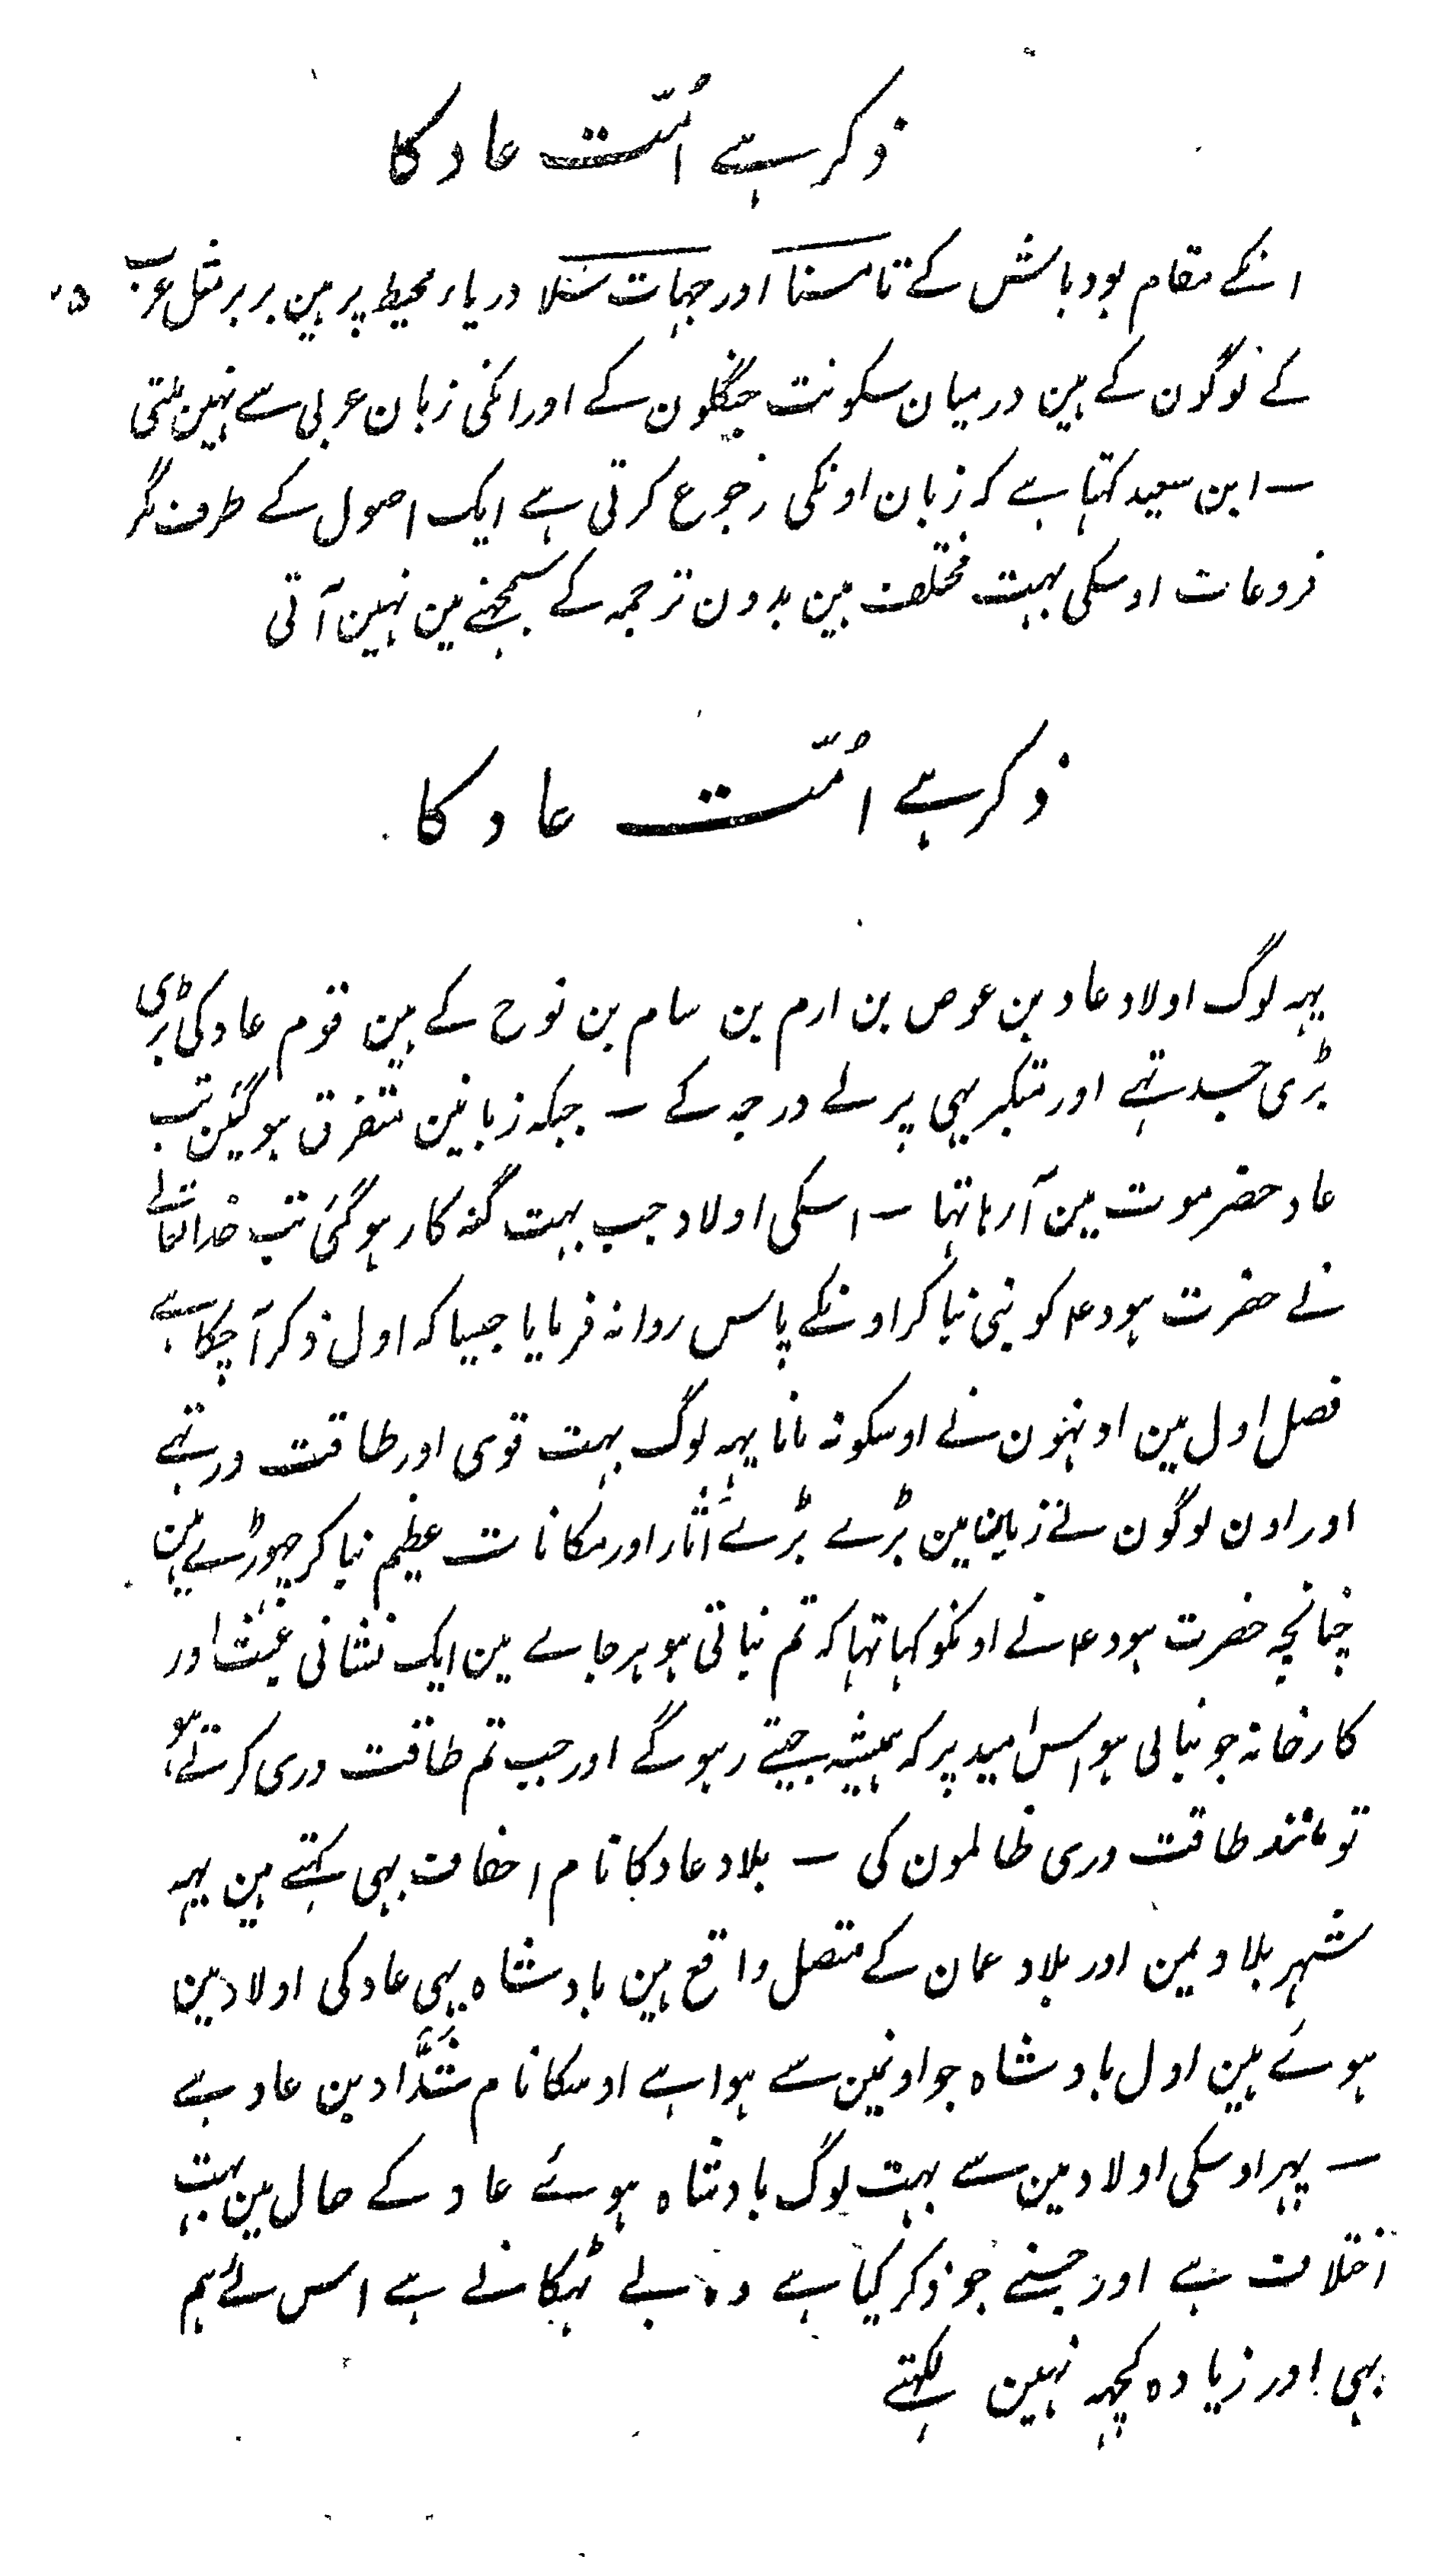 ذکر ہے اُمّت عاد کا
انکے مقام بود باش کے تامسنا اور جہات سَلا دریاء محیط پر ہین بربر مثل عرب
کے لوگون کے ہین درمیان سکونت جنگلون کے اور انکی زبان عربی سے نہین ملتی
۔ ابن سعید کہتا ہے کہ زبان اونکی رجوع کرتی ہے ایک اصول کے طرف مگر
فروعات اوسکی بہت مختلف ہین بدون ترجمہ کے سمجھنے مین نہین آتی
ذکر ہے اُمّت عاد کا
یہہ لوگ اولاد عاد بن عوص بن ارم بن سام بن نوح کے ہین قوم عاد کی بڑی
بڑی جسد تہے اور متکبر بہی پرلے درجہ کے ۔ جبکہ زبانین متفرق ہوگیئن تب
عاد حضرموت مین آرہا تہا ۔ اسکی اولاد جب بہت گنہ کار ہوگئی تب خدا تعالے
نے حضرت ہود ع کو نبی بنا کر اونکے پاس روانہ فرمایا جیسا کہ اول ذکر آ چکا ہے
فصل اول مین اونہون نے اوسکو نہ مانا یہہ لوگ بہت قوی اور طاقت ور تہے
اور اون لوگون نے زمین مین بڑے بڑے آثار اور مکانات عظیم بنا کر چہوڑے ہین
چنانچہ حضرت ہود ع نے اونکو کہا تہا کہ تم بناتی ہو ہر جاے مین ایک نشانی عبث اور
کارخانہ جو بنالی ہو اس امید پر کہ ہمیشہ جیتے رہوگے اور جب تم طاقت وری کرتے ہو
تو مانند طاقت وری ظالمون کی ۔ بلاد عاد کا نام احقاف بہی کہتے ہین یہہ
شہر بلاد یمن اور بلاد عمان کے متصل واقع ہین بادشاہ بہی عاد کی اولاد مین
ہوئے ہین اول بادشاہ جو اونمین سے ہوا ہے اوسکا نام شَدَّاد بن عاد ہے
۔ پہر اوسکی اولاد مین سے بہت لوگ بادشاہ ہوئے عاد کے حال مین بہت
اختلاف ہے اور جسنے جو ذکر کیا ہے وہ بے ٹہکانے ہے اس لئے ہم
بہی اور زیادہ کچہہ نہین لکہتے